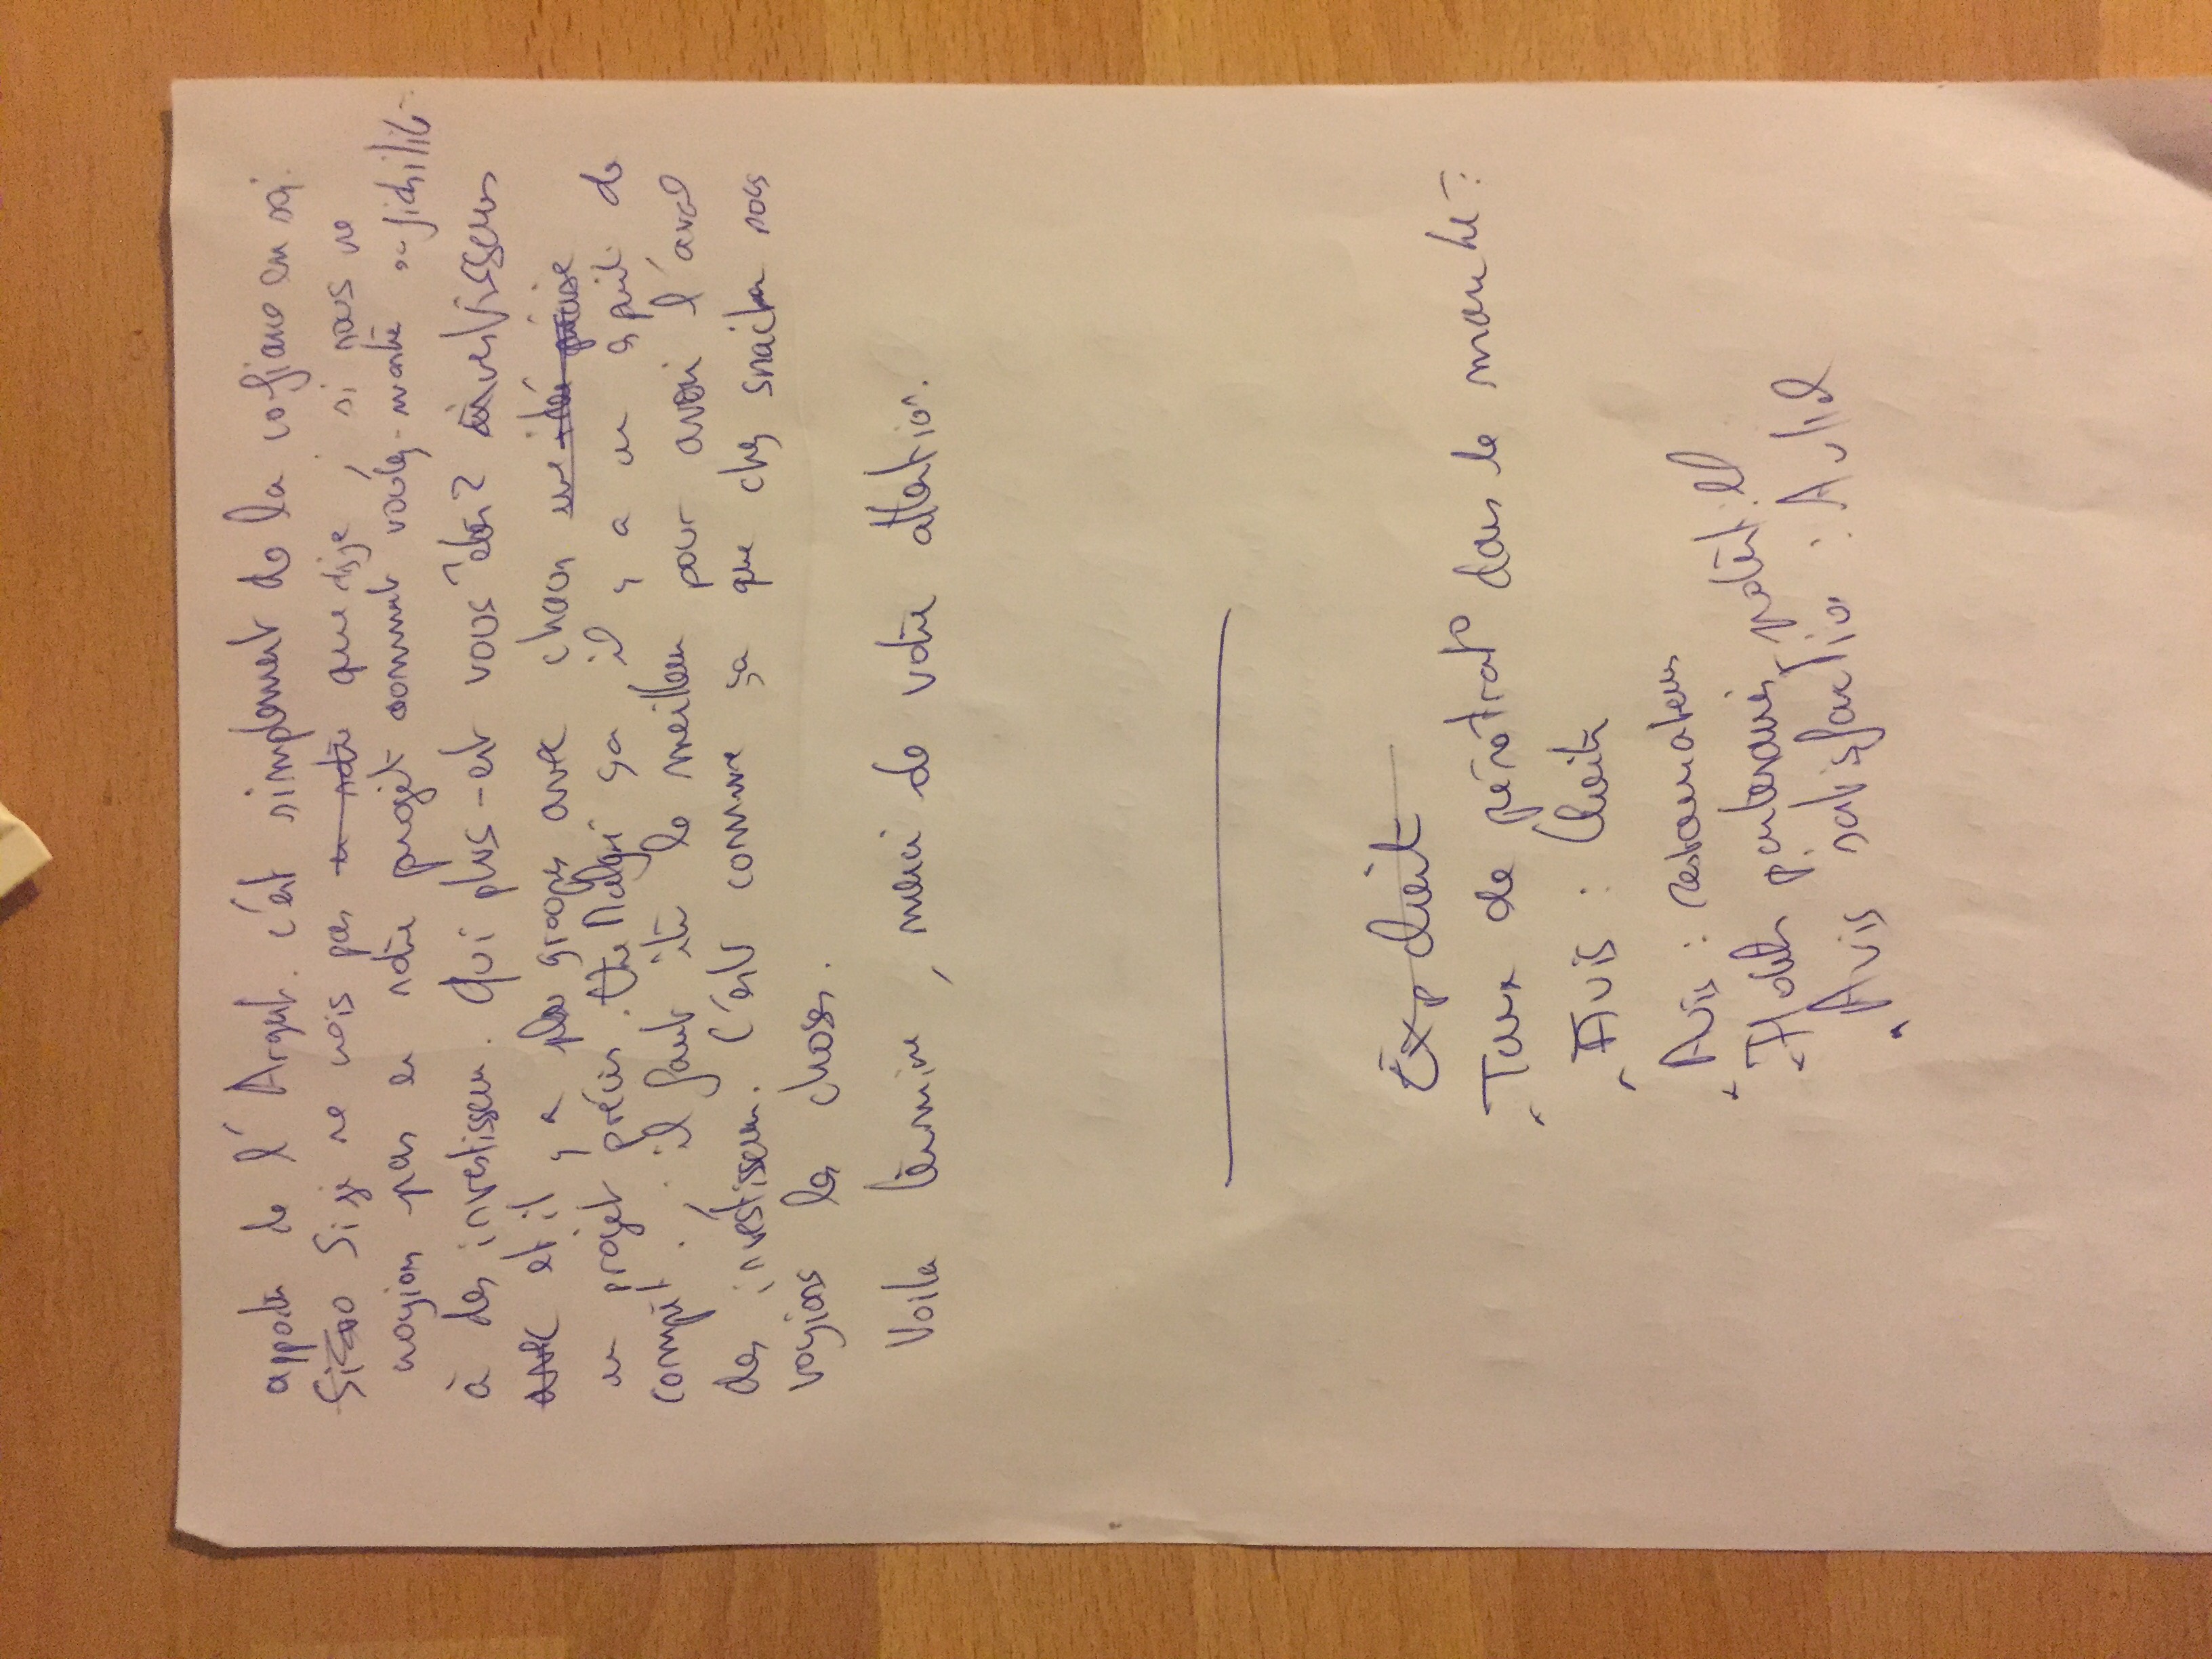 apporter de l'Argent. c'est simplement de la confiance en soi.
Si je ne crois pas en notre que dis je ; si nous ne
croyions pas en notre projet comment voulez-montrer sa fiabilité
à des investisseur. Qui plus-est vous êtes 2 investisseurs
avec et il y a plu groupes avec chacun une idée précise
un projet précis. Malgré ça il y a un esprit de
compét., il faut être le meilleur pour avoir l'aval
des investisseur. C'est comme ça que chez snacker nous
voyions les choses.
Voila terminé, merci de votre attention.
Exp client
- Taux de pénétrat° dans le marché :
- Avis : Clients
- Avis : restaurateurs
- partenaires potentiel
- Avis satisfaction :